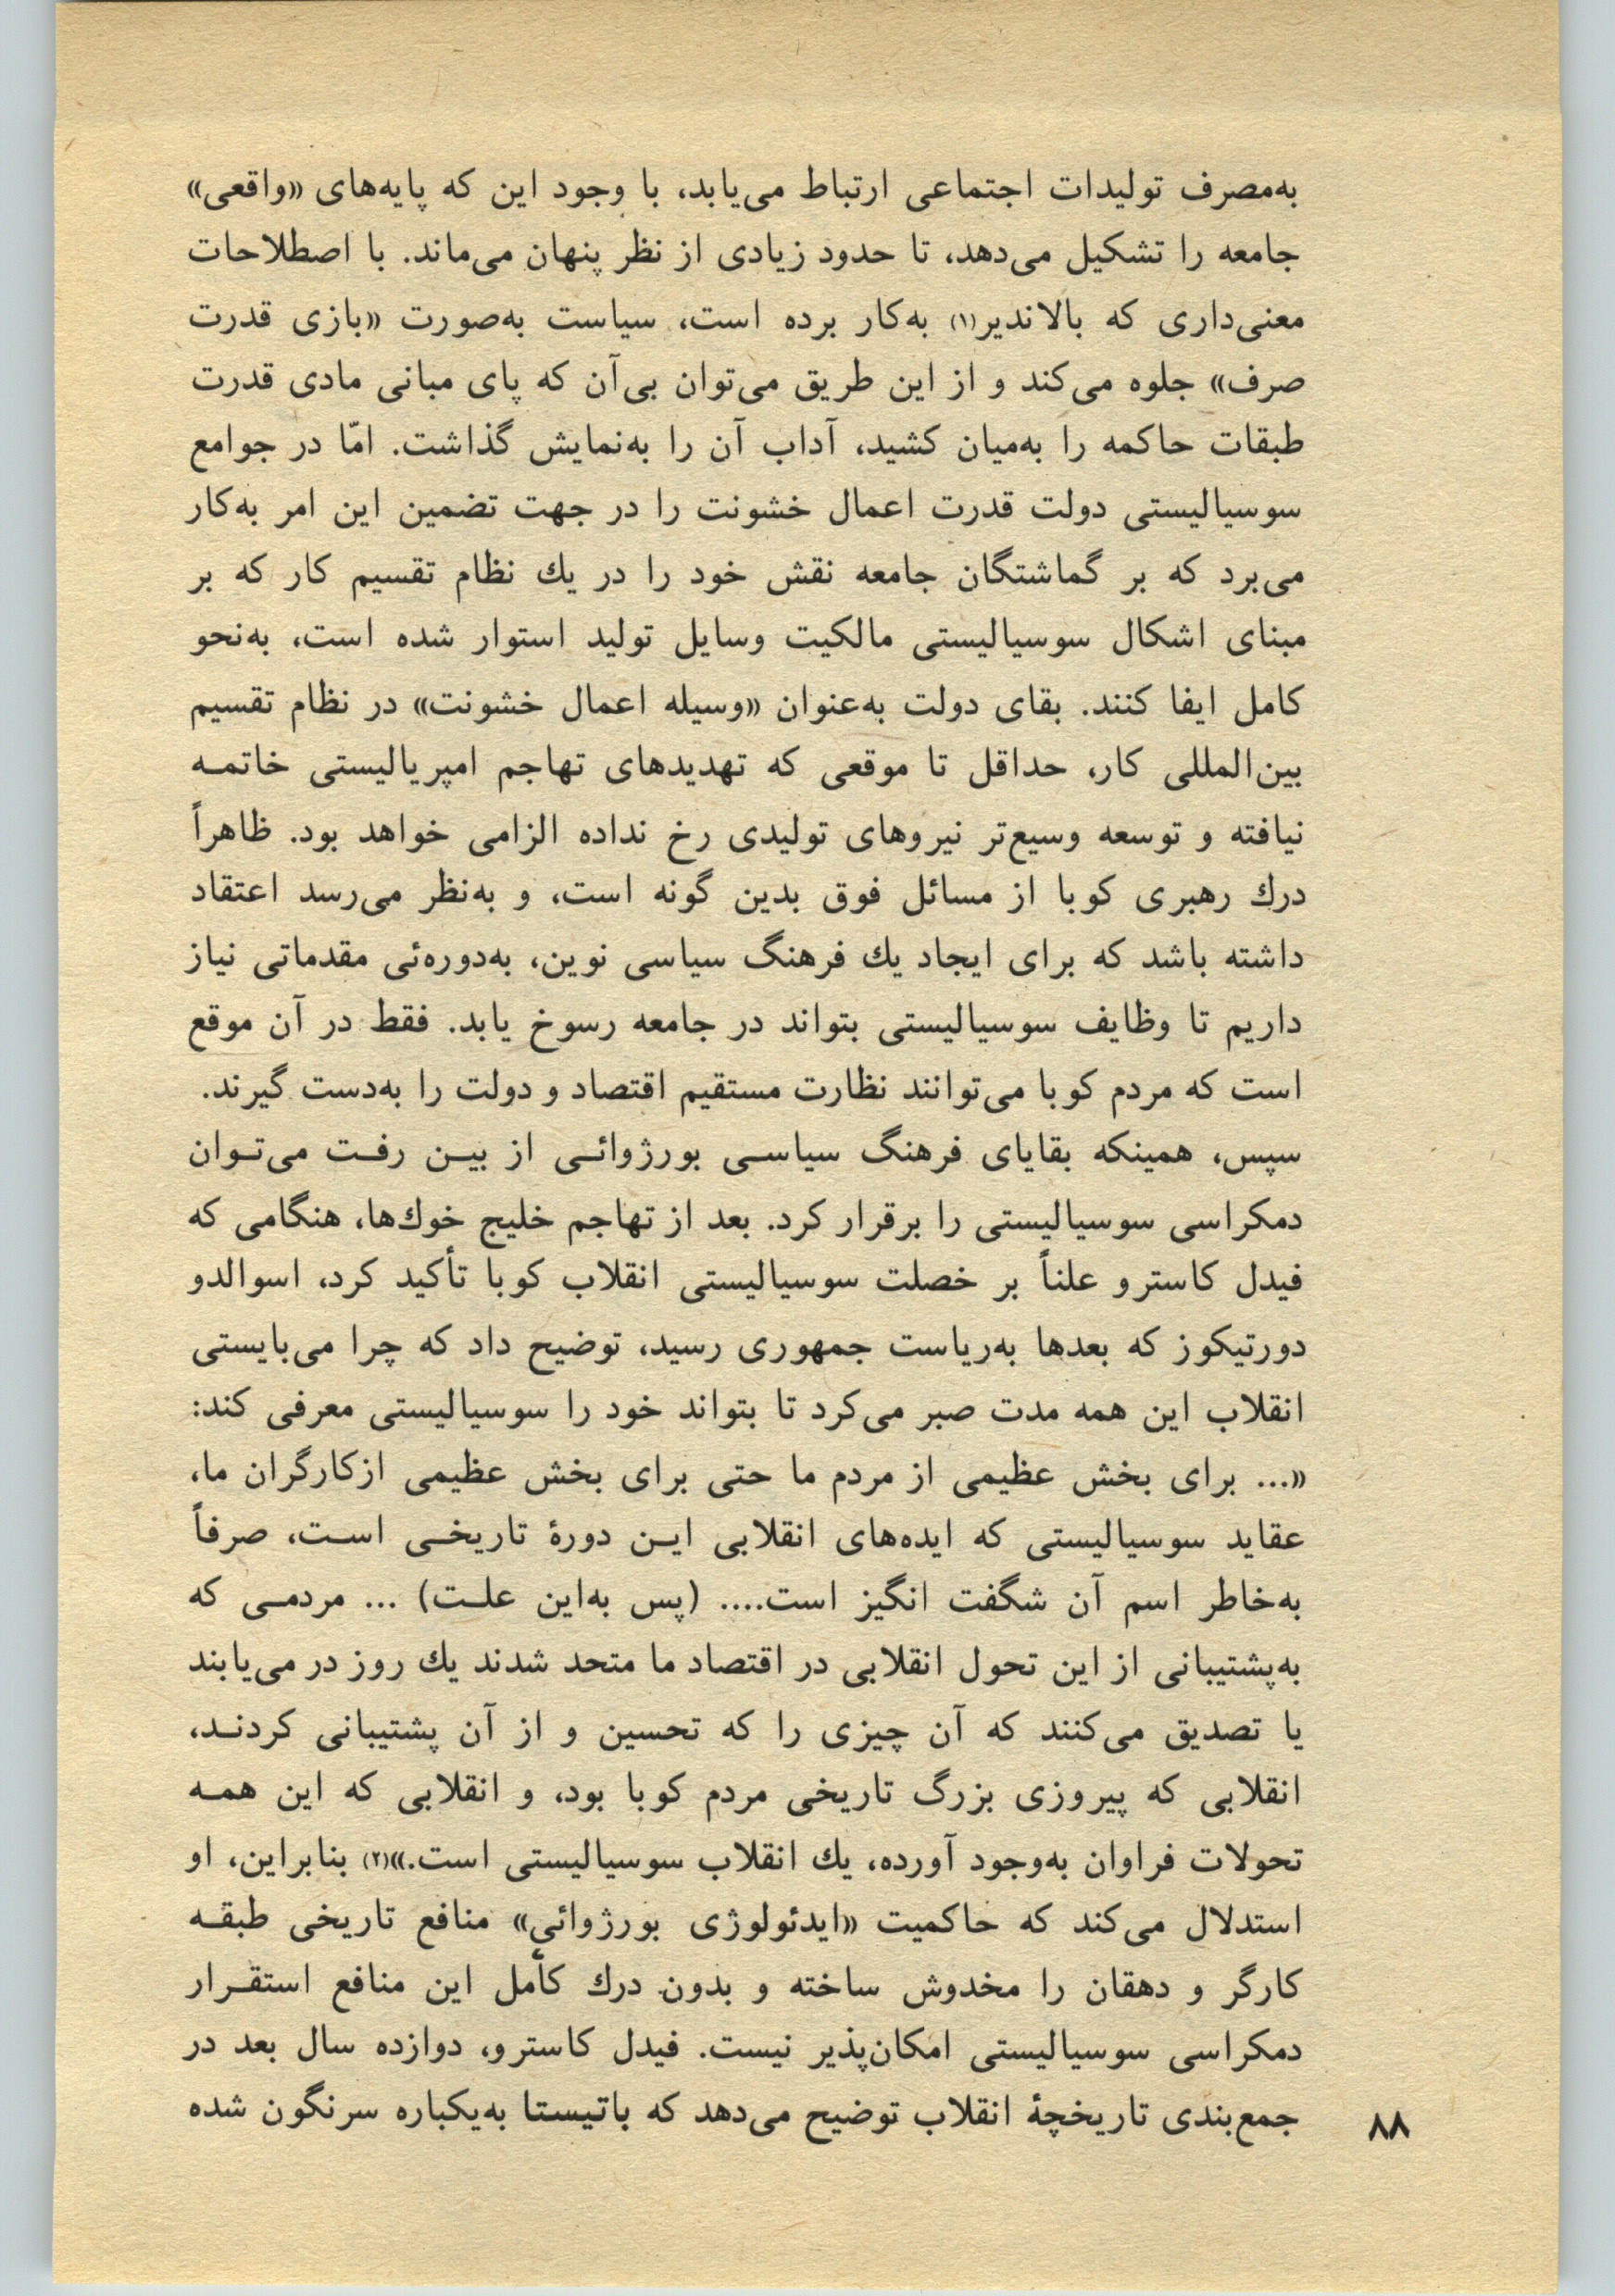 به‌مصرف تولیدات اجتماعی ارتباط می‌یابد، با وجود این که پایه‌های «واقعی»
جامعه را تشکیل می‌دهد، تا حدود زیادی از نظر پنهان می‌ماند. با اصطلاحات
معنی‌داری که بالاندیر(۱) به‌کار برده است، سیاست به‌صورت «بازی قدرت
صرف» جلوه می‌کند و از این طریق می‌توان بی‌آن که پای مبانی مادی قدرت
طبقات حاکمه را به‌میان کشید، آداب آن را به‌نمایش گذاشت. امّا در جوامع
سوسیالیستی دولت قدرت اعمال خشونت را در جهت تضمین این امر به‌کار
می‌برد که بر گماشتگان جامعه نقش خود را در یك نظام تقسیم کار که بر
مبنای اشکال سوسیالیستی مالکیت وسایل تولید استوار شده است، به‌نحو
کامل ایفا کنند. بقای دولت به‌عنوان «وسیله اعمال خشونت» در نظام تقسیم
بین‌المللی کار، حداقل تا موقعی که تهدیدهای تهاجم امپریالیستی خاتمـه
نیافته و توسعه وسیع‌تر نیروهای تولیدی رخ نداده الزامی خواهد بود. ظاهراً
درك رهبری کوبا از مسائل فوق بدین گونه است، و به‌نظر می‌رسد اعتقاد
داشته باشد که برای ایجاد یك فرهنگ سیاسی نوین، به‌دوره‌ئی مقدماتی نیاز
داریم تا وظایف سوسیالیستی بتواند در جامعه رسوخ یابد. فقط در آن موقع
است که مردم کوبا می‌توانند نظارت مستقیم اقتصاد و دولت را به‌دست گیرند.
سپس، همینکه بقایای فرهنگ سیاسـی بورژوائـی از بیـن رفـت می‌تـوان
دمکراسی سوسیالیستی را برقرار کرد. بعد از تهاجم خلیج خوك‌ها، هنگامی که
فیدل کاسترو علناً بر خصلت سوسیالیستی انقلاب کوبا تأکید کرد، اسوالدو
دورتیکوز که بعدها به‌ریاست جمهوری رسید، توضیح داد که چرا می‌بایستی
انقلاب این همه مدت صبر می‌کرد تا بتواند خود را سوسیالیستی معرفی کند:
«... برای بخش عظیمی از مردم ما حتی برای بخش عظیمی ازکارگران ما،
عقاید سوسیالیستی که ایده‌های انقلابی ایـن دورهٔ تاریخـی اسـت، صرفاً
به‌خاطر اسم آن شگفت انگیز است.... (پس به‌این علـت) ... مردمـی که
به‌پشتیبانی از این تحول انقلابی در اقتصاد ما متحد شدند یك روز در می‌یابند
یا تصدیق می‌کنند که آن چیزی را که تحسین و از آن پشتیبانی کردنـد،
انقلابی که پیروزی بزرگ تاریخی مردم کوبا بود، و انقلابی که این همـه
تحولات فراوان به‌وجود آورده، یك انقلاب سوسیالیستی است.»(۲) بنابراین، او
استدلال می‌کند که حاکمیت «ایدئولوژی بورژوائیِ» منافع تاریخی طبقـه
کارگر و دهقان را مخدوش ساخته و بدون درك کأمل این منافع استقـرار
دمکراسی سوسیالیستی امکان‌پذیر نیست. فیدل کاسترو، دوازده سال بعد در
جمع‌بندی تاریخچهٔ انقلاب توضیح می‌دهد که باتیستا به‌یکباره سرنگون شده
۸۸